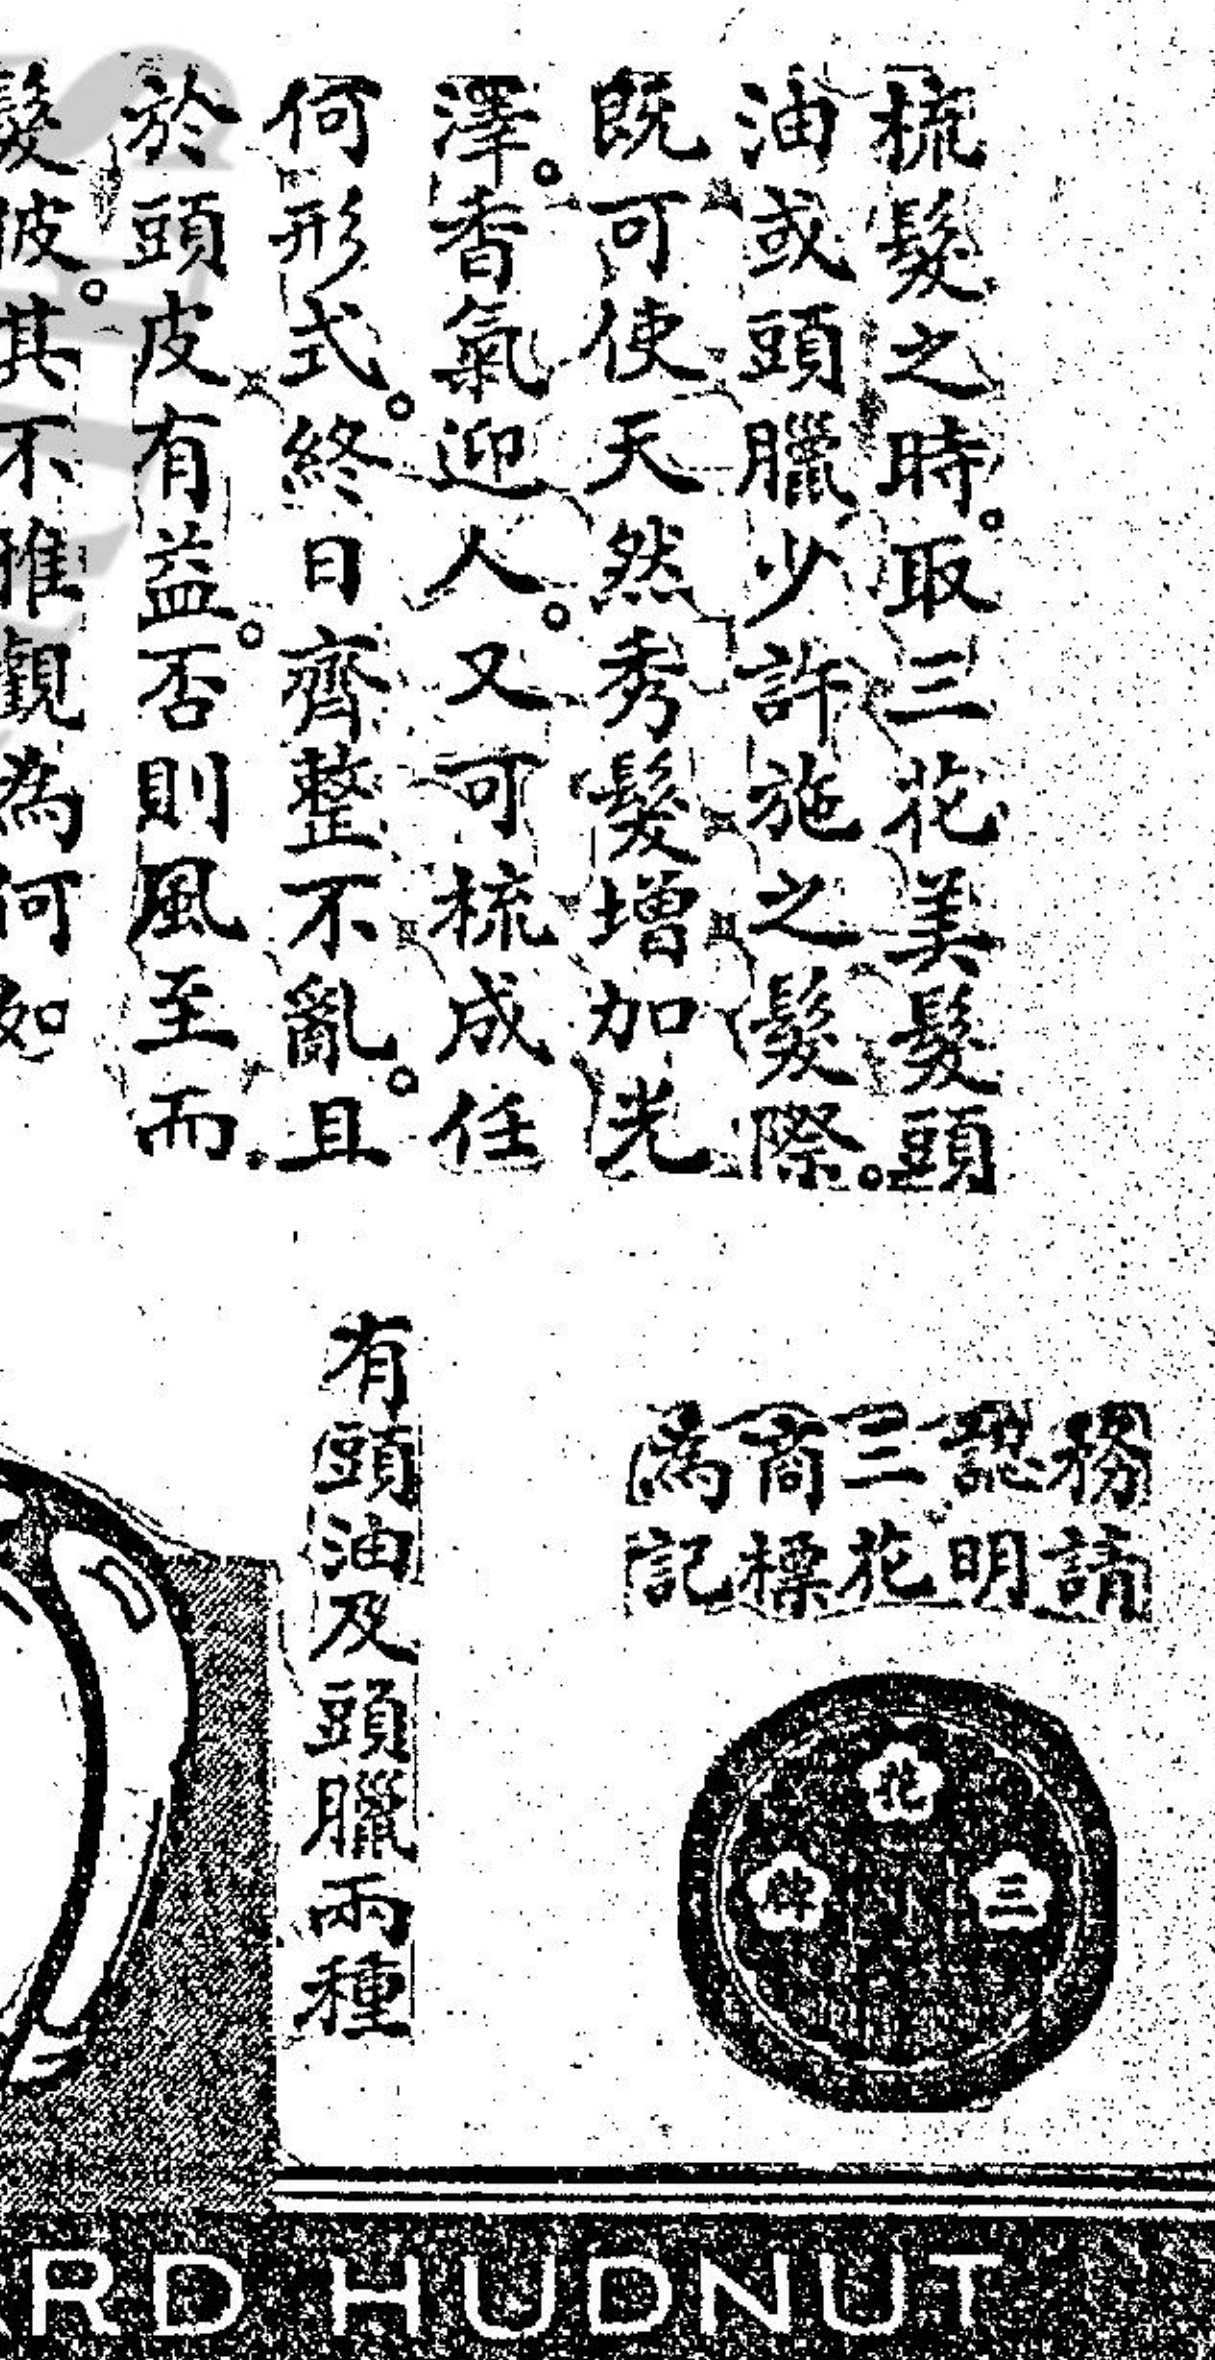 梳髮之時。取三花美髮頭
油或頭臘少許施之髮際。
既可使天然秀髮增加光
澤。香氣迎人。又可梳成任
何形式。終日齊整不亂。且
於頭皮有益。否則風至而
髮披。其不雅觀為何如
務請
認明
三花
商標
為記
花
三
牌
有頭油及頭臘兩種
RD HUDNUT